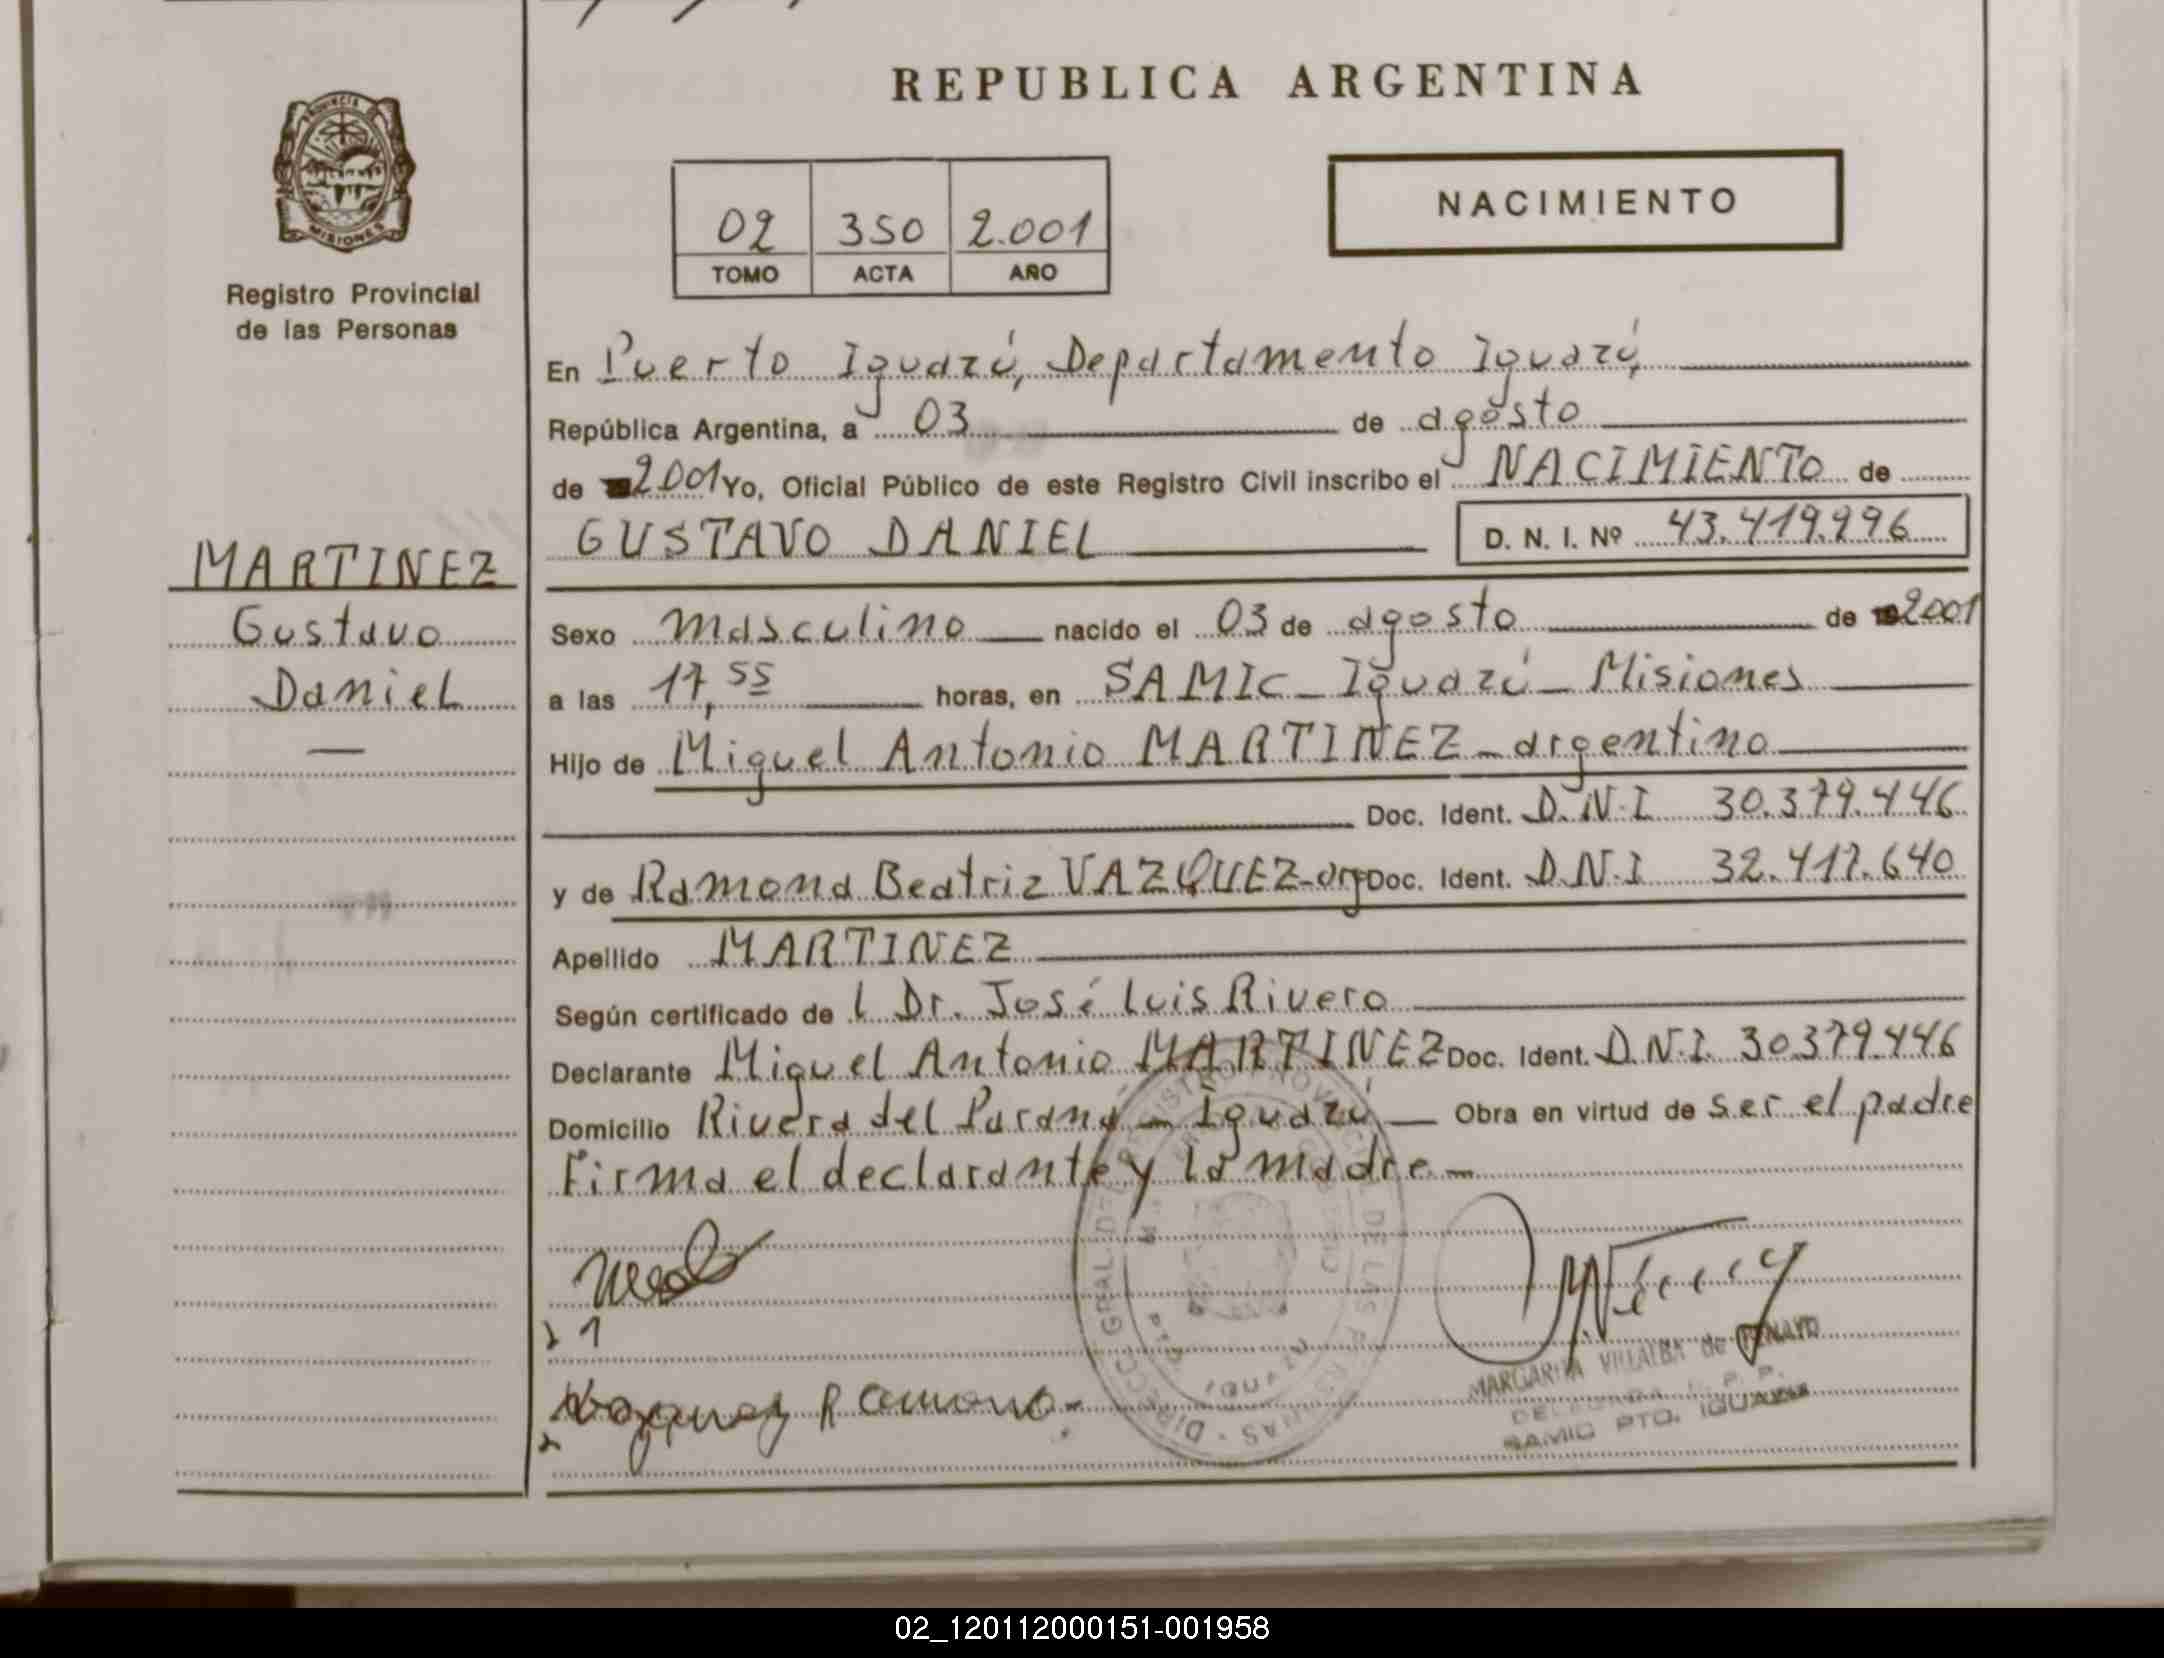 REPUBLICA ARGENTINA
PROVINCIA
MISIONES
Registro Provincial
de las Personas
02 350 2.001
TOMO ACTA AÑO
NACIMIENTO
En Puerto Iguazú, Departamento Iguazú,
República Argentina, a 03 de agosto
de 2001 Yo, Oficial Público de este Registro Civil inscribo el NACIMIENTO de
GUSTAVO DANIEL D. N. I. Nº 43.419.996
MARTINEZ
Gustavo
Daniel
Sexo masculino nacido el 03 de agosto de 2001
a las 17,55 horas, en SAMIC - Iguazú - Misiones
Hijo de Miguel Antonio MARTINEZ - argentino
Doc. Ident. D.N.I 30.379.446
y de Ramona Beatriz VAZQUEZ - arg Doc. Ident. D.N.I 32.417.640
Apellido MARTINEZ
Según certificado de l Dr. José Luis Rivero
Declarante Miguel Antonio MARTINEZ Doc. Ident. D.N.I. 30379.446
Domicilio Rivera del Paraná - Iguazú Obra en virtud de ser el padre
Firma el declarante y la madre -
1
Ramona
DIRECC. GRAL. DEL REGISTRO PROVINCIAL DE LAS PERSONAS
PTO. IGUAZU
MARGARITA VILLALBA de
SAMIC PTO. IGUAZU
02_120112000151-001958